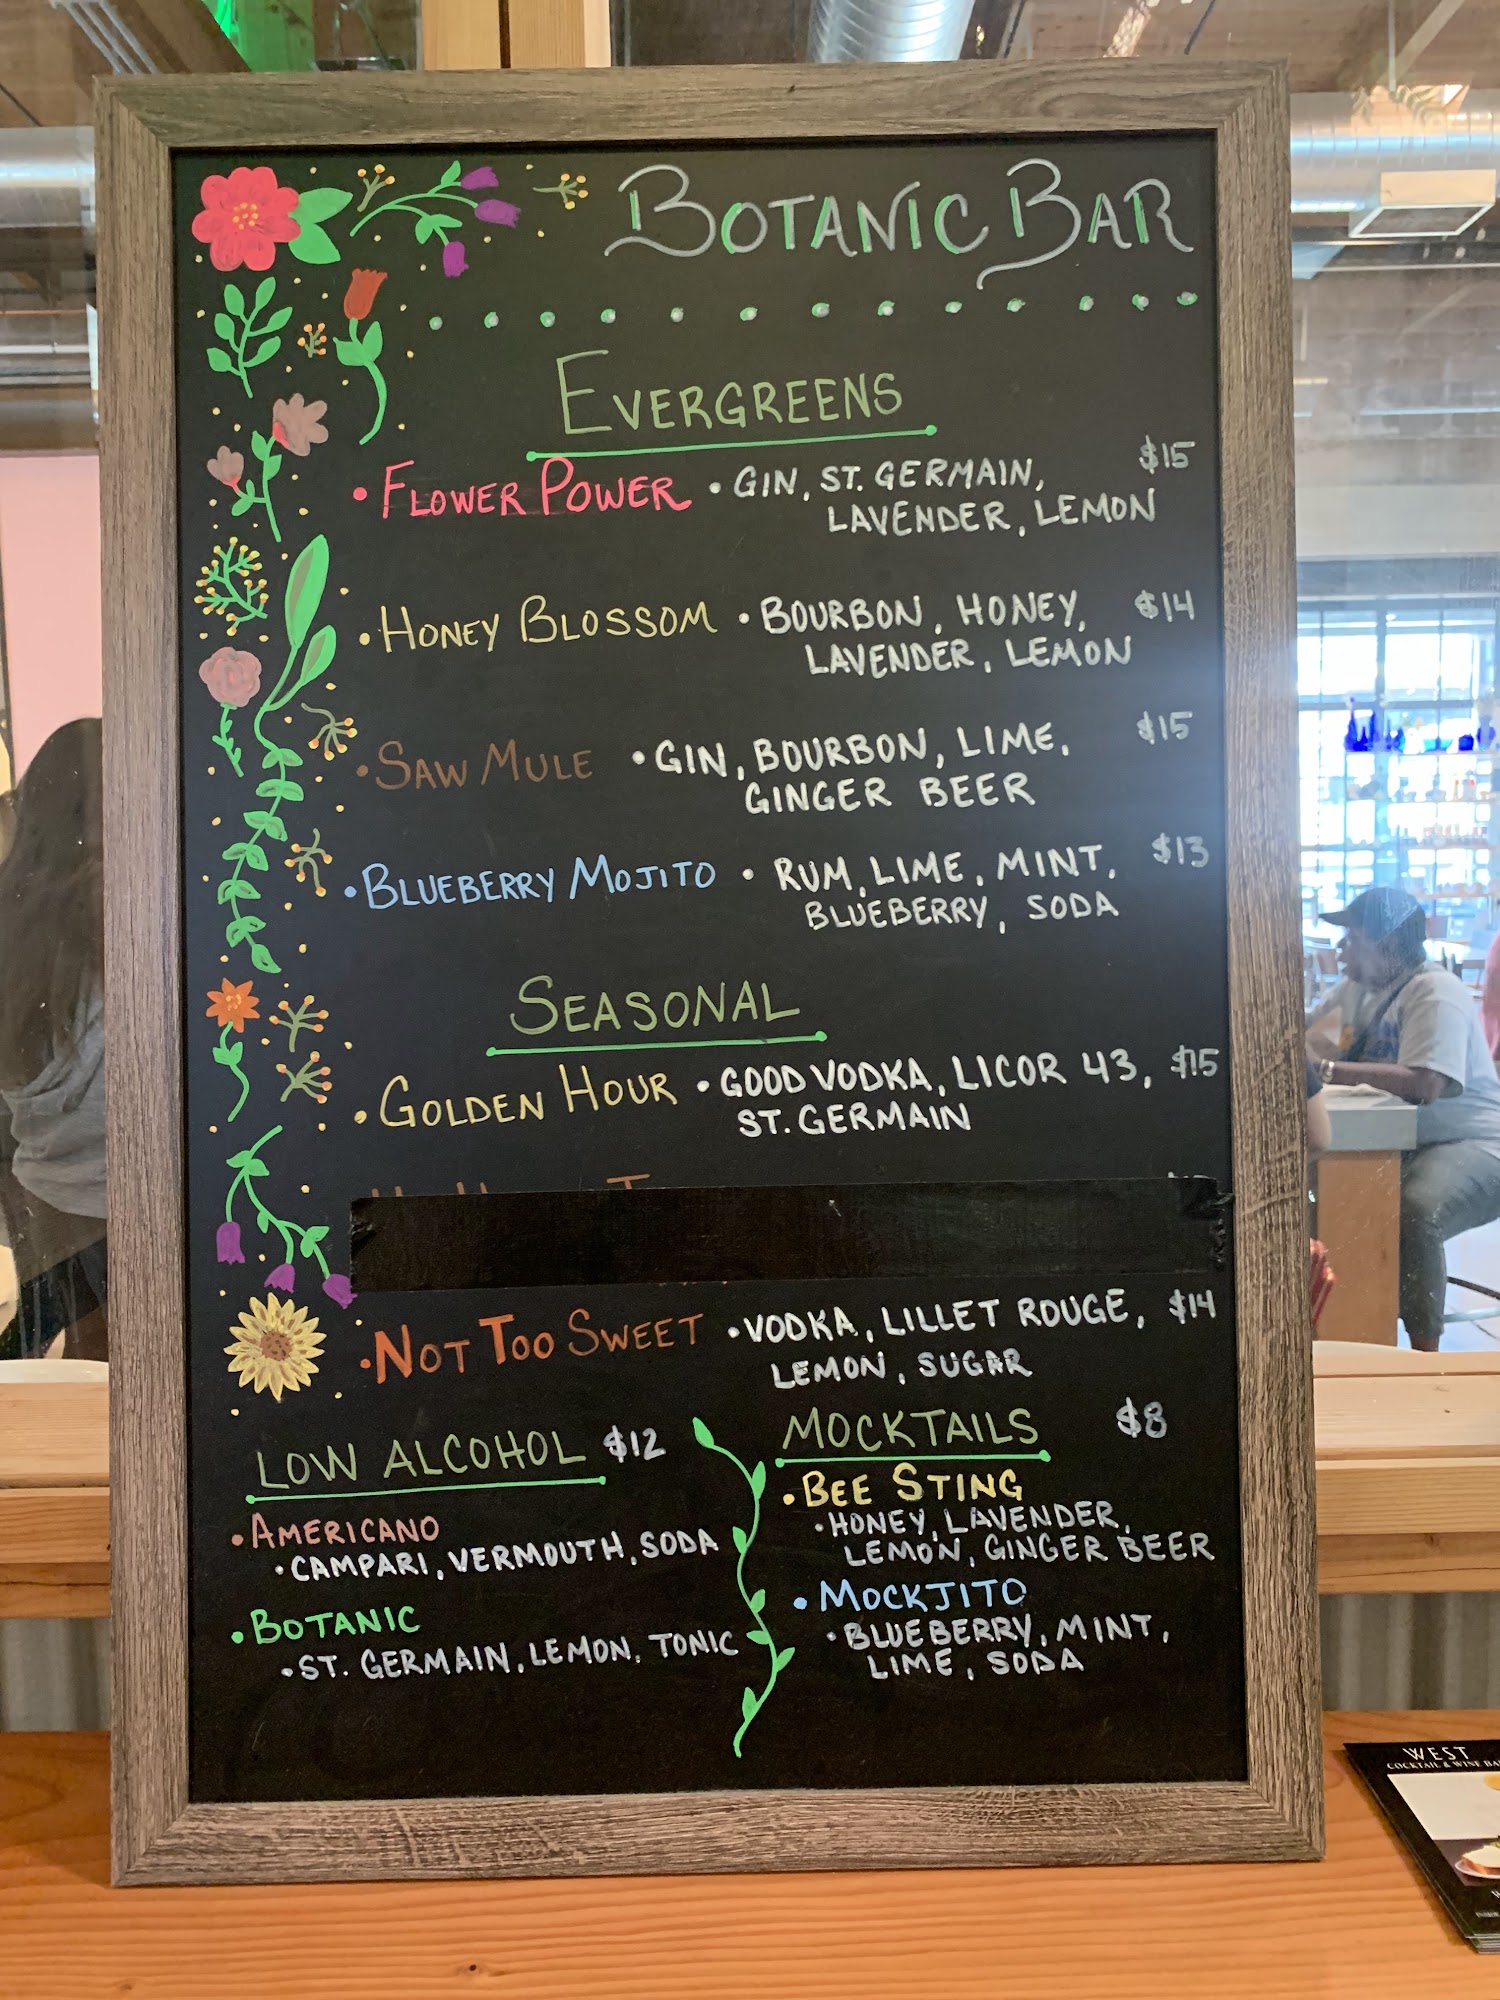 BOTANIC BAR
EVERGREENS
• FLOWER POWER • GIN, ST. GERMAIN, $15
LAVENDER, LEMON
• HONEY BLOSSOM • BOURBON, HONEY, $14
LAVENDER, LEMON
• SAW MULE • GIN, BOURBON, LIME, $15
GINGER BEER
• BLUEBERRY MOJITO • RUM, LIME, MINT, $13
BLUEBERRY, SODA
SEASONAL
• GOLDEN HOUR • GOOD VODKA, LICOR 43, $15
ST. GERMAIN
• NOT TOO SWEET • VODKA, LILLET ROUGE, $14
LEMON, SUGAR
LOW ALCOHOL $12
• AMERICANO
• CAMPARI, VERMOUTH, SODA
• BOTANIC
• ST. GERMAIN, LEMON, TONIC
MOCKTAILS $8
• BEE STING
• HONEY, LAVENDER,
LEMON, GINGER BEER
• MOCKJITO
• BLUEBERRY, MINT,
LIME, SODA
WEST
COCKTAIL & WINE